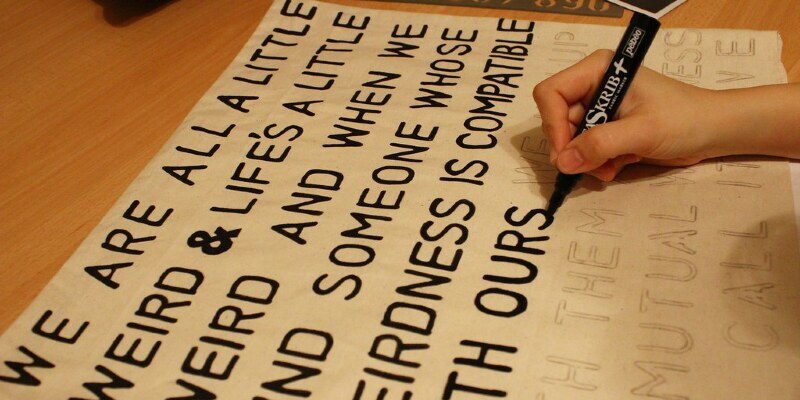 WE ARE ALL A LITTLE
WEIRD & LIFE'S A LITTLE
WEIRD AND WHEN WE
IND SOMEONE WHOSE
EIRDNESS IS COMPATIBLE
TH OURS WE UP
H THEM
MUTUAL W ESS
CALL IT VE
SKRIB+ pébéo
890